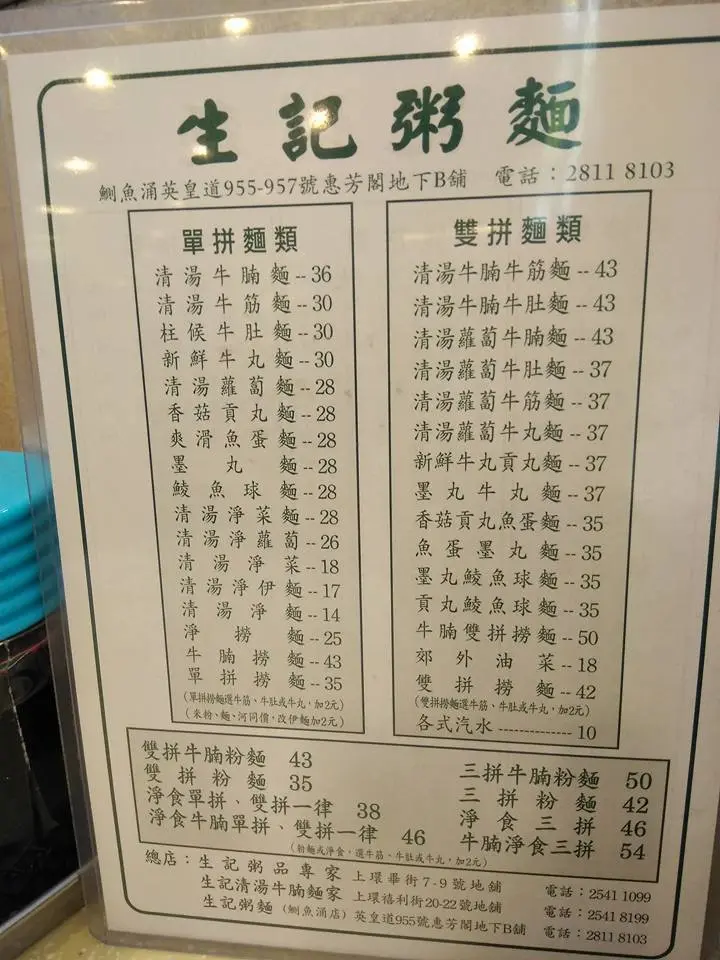 生記粥麵
鰂魚涌英皇道955-957號惠芳閣地下B舖 電話：2811 8103
單拼麵類
清湯牛腩麵--36
清湯牛筋麵--30
柱候牛肚麵--30
新鮮牛丸麵--30
清湯蘿蔔麵--28
香菇貢丸麵--28
爽滑魚蛋麵--28
墨丸麵--28
鯪魚球麵--28
清湯淨菜麵--28
清湯淨蘿蔔--26
清湯淨菜--18
清湯淨伊麵--17
清湯淨麵--14
淨撈麵--25
牛腩撈麵--43
單拼撈麵--35
（單拼撈麵選牛筋、牛肚或牛丸，加2元）
（米粉、麵、河同價，改伊麵加2元）
雙拼麵類
清湯牛腩牛筋麵--43
清湯牛腩牛肚麵--43
清湯蘿蔔牛腩麵--43
清湯蘿蔔牛肚麵--37
清湯蘿蔔牛筋麵--37
清湯蘿蔔牛丸麵--37
新鮮牛丸貢丸麵--37
墨丸牛丸麵--37
香菇貢丸魚蛋麵--35
魚蛋墨丸麵--35
墨丸鯪魚球麵--35
貢丸鯪魚球麵--35
牛腩雙拼撈麵--50
郊外油菜--18
雙拼撈麵--42
（雙拼撈麵選牛筋、牛肚或牛丸，加2元）
各式汽水--------------10
雙拼牛腩粉麵 43
雙拼粉麵 35
淨食單拼、雙拼一律 38
淨食牛腩單拼、雙拼一律 46
三拼牛腩粉麵 50
三拼粉麵 42
淨食三拼 46
牛腩淨食三拼 54
（粉麵或淨食，選牛筋、牛肚或牛丸，加2元）
總店：生記粥品專家 上環畢街7-9號地舖 電話：2541 1099
生記清湯牛腩麵家 上環禧利街20-22號地舖 電話：2541 8199
生記粥麵（鰂魚涌店）英皇道955號惠芳閣地下B舖 電話：2811 8103